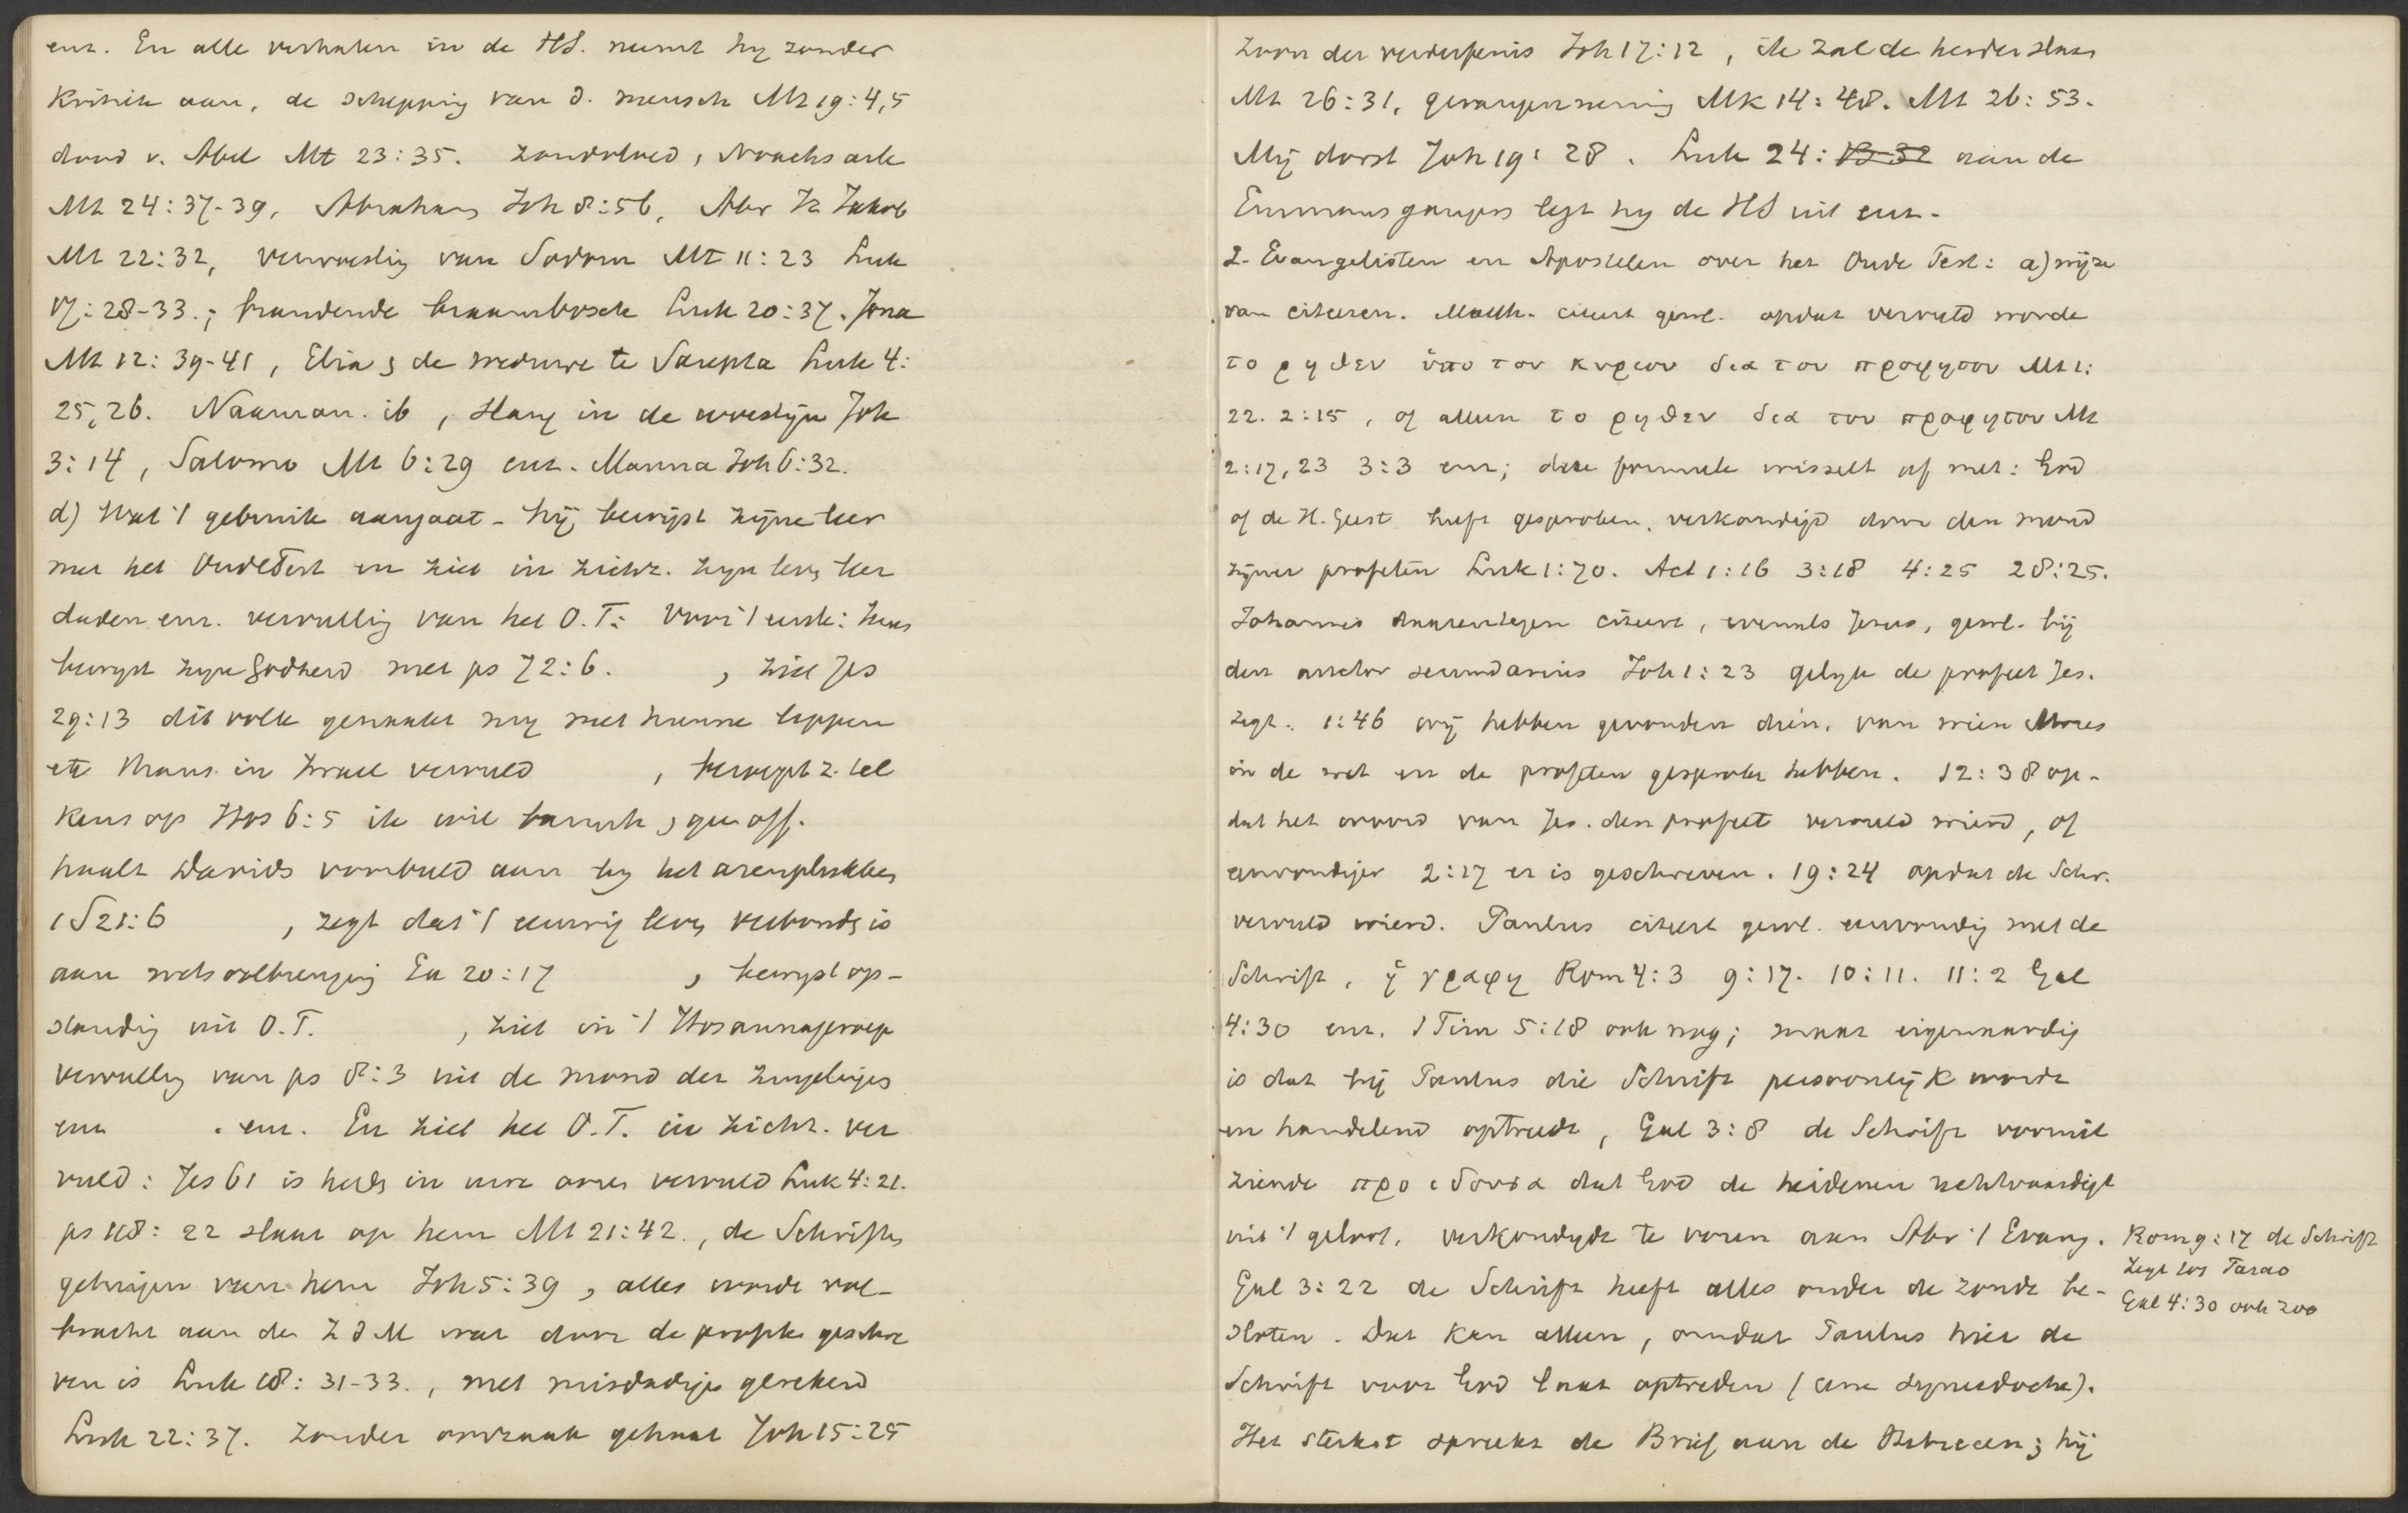 enz. En alle verhalen in de HS. neemt hy zonder
Kritiek aan, de schepping van d. mensch Mt 19:4,5
dood v. Abel Mt 23:35. zondvloed, Noachs ark
Mt 24:37-39, Abraham Joh 8:56, Abr Iz Jakob
Mt 22:32, verwoesting van Sodom Mt 11:23 Luk
17:28-33.; brandende braambosch Luk 20:37. Jona
Mt 12:39-41, Elia & de weduwe te Sarepta Luk 4:
25,26. Naäman. ib, slang in de woestijn Joh
3:14, Salomo Mt 6:29 enz. Manna Joh 6:32.
d) Wat 't gebruik aangaat - hij bewijst zijne leer
met het Oude Test en ziet in zichz. zyn lev, leer
daden enz. vervulling van het O.T: Voor 't eerste:
bewyst zyne Godheid met ps 72:6. , ziet Jes
29:13 dit volk genaakt my met hunne lippen
etc thans in Israel vervuld , beroept z. tel
kens op Hos 6:5 ik wil barmh, geen off.
haalt Davids voorbeeld aan by het arenplukken
1 S 21:6 , zegt dat 't eeuwig leven verbonden is
aan wetsvolbrenging Ex 20:17 , bewyst op-
standing uit O.T. , ziet in 't Hosannageroep
vervulling van ps 8:3 uit de mond der zuigelingen
enz . enz. En ziet het O.T. in zichz. ver
vuld: Jes 61 is heden in uwe oren vervuld Luk 4:21.
ps 118:22 slaat op hem Mt 21:42., de Schriften
getuigen van hem Joh 5:39, alles wordt vol-
bracht aan den Z d M wat door de profeten geschre
ven is Luk 18:31-33., met misdadigers gerekend
Luk 22:37. Zonder oorzaak gehaat Joh 15:25
Zoon der verderfenis Joh 17:12, ik zal de herder slaan
Mt 26:31, gevangenneming Mk 14:48. Mt 26:53.
Mij dorst Joh 19:28. Luk 24: 13-32 aan de
Emmausgangers legt hy de HS uit enz.
2. Evangelisten en Apostelen over het Oude Test: a) wijze
van citeeren. Matth. citeert gewl. opdat vervuld worde
το ρηθεν ὑπο του κυριου δια του προφητου Mt 1:
22. 2:15, of alleen το ρηθεν δια του προφητου Mt
2:17,23 3:3 enz; deze formule wisselt af met: God
of de H. Geest heeft gesproken, verkondigd door den mond
zijner profeten Luk 1:70. Act 1:16 3:18 4:25 28:25.
Johannes daarentegen citeert, evenals Jezus, gewl. bij
den auctor secundarius Joh 1:23 gelyk de profeet Jes.
zegt. 1:46 wij hebben gevonden dien, van wien Mozes
in de wet en de profeten gesproken hebben. 12:38 op-
dat het woord van Jes. den profeet vervuld wierd, of
eenvoudiger 2:17 er is geschreven. 19:24 opdat de Schr.
vervuld wierd. Paulus citeert gewl. eenvoudig met de
Schrift, ἡ γραφη Rom 4:3 9:17. 10:11. 11:2 Gal
4:30 enz. 1 Tim 5:18 ook nog; maar eigenaardig
is dat bij Paulus die Schrift persoonlijk wordt
en handelend optreedt, Gal 3:8 de Schrift vooruit
ziende προιδουσα dat God de heidenen rechtvaardigt
uit 't geloof, verkondigde te voren aan Abr 't Evang.
Gal 3:22 de Schrift heeft alles onder de zonde be-
sloten. Dat kan alleen, omdat Paulus hier de
Schrift voor God laat optreden (eene synecdoche).
Het sterkst spreekt de Brief aan de Hebreeen; hij
Rom 9:17 de Schrift
zegt tot Farao
Gal 4:30 ook zoo